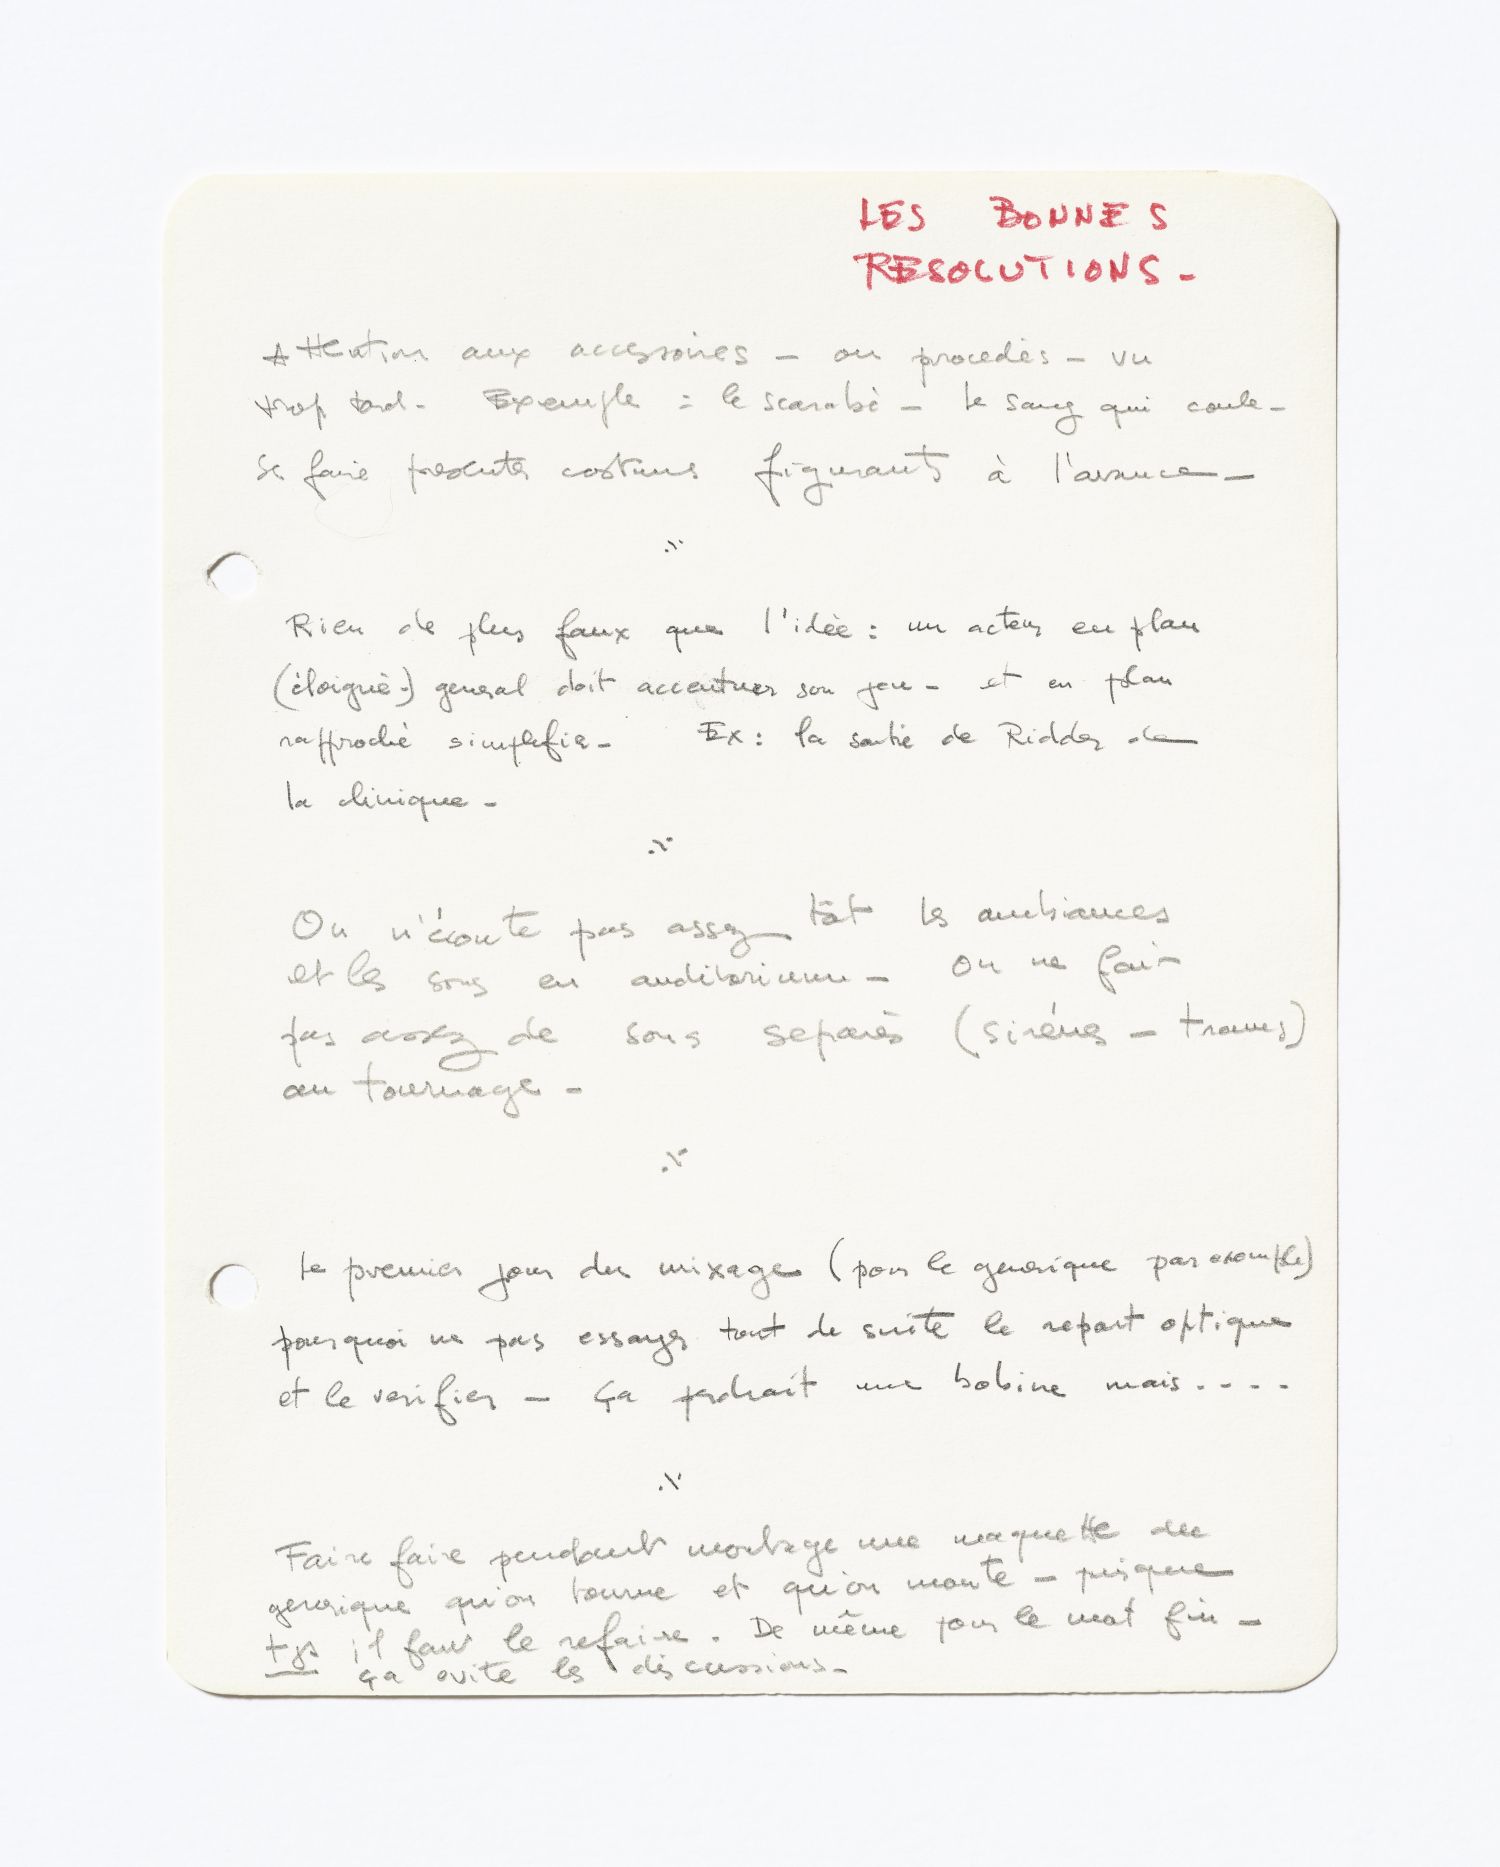 LES BONNES
RESOLUTIONS -
Attention aux accessoires - ou procedés - vu
trop tard - Exemple : le scarabé - le sang qui coule -
Se faire presenter costumes figurants à l'avance -
Rien de plus faux que l'idée : un acteur en plan
(éloigné-) general doit accentuer son jeu - et en plan
rapproché simplifie - Ex : la sortie de Ridder de
la clinique -
On n'écoute pas assez tôt les ambiances
et les sons en auditorium - On ne fait
pas assez de sons separés (sirénes - trams)
au tournage -
Le premier jour du mixage (pour le generique par exemple)
pourquoi ne pas essayer tout de suite le report optique
et le verifier - Ça perdrait une bobine mais ....
Faire faire pendant montage une maquette du
generique qu'on tourne et qu'on monte - puisque
tjs il faut le refaire. De même pour le mot fin -
ça evite les discussions -